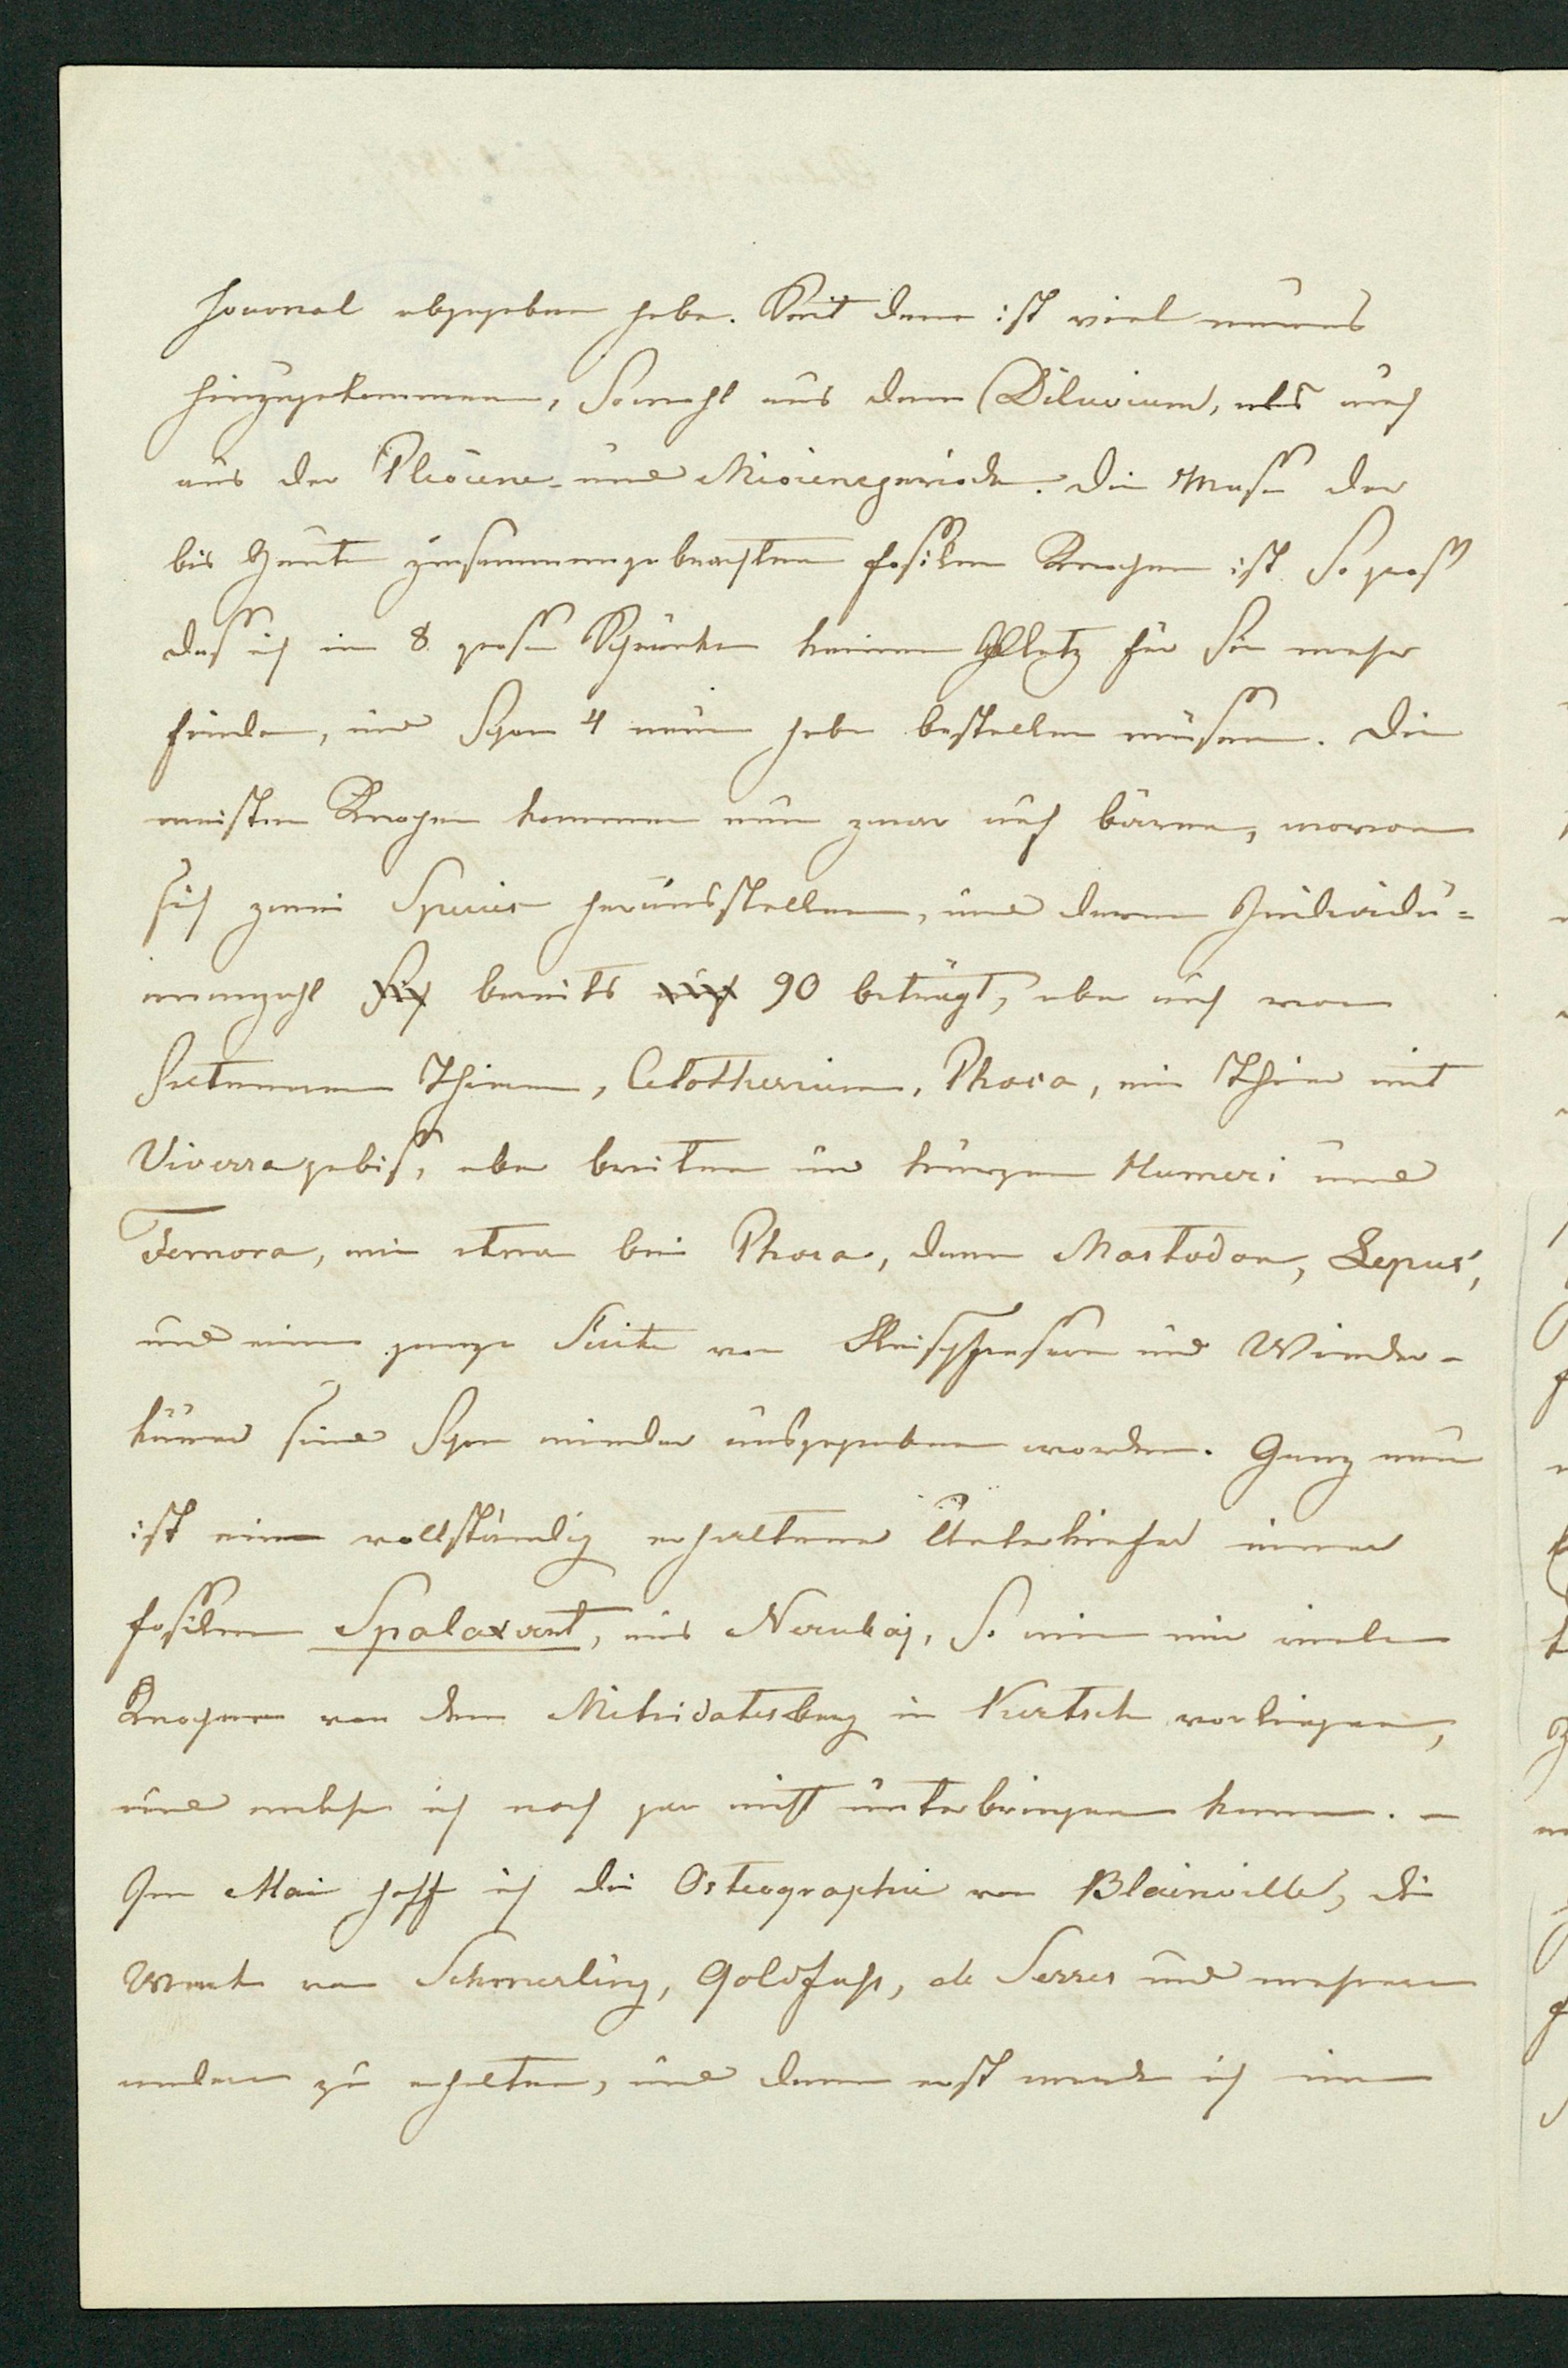 Journal abgegeben habe. Seit dem ist viel neues
hinzugekommen, sowohl aus dem Diluvium, als auch
aus der Pliocene- und Mioceneperiode. Die Masse der
bis heute zusammengebrachten fossilen Knochen ist so groß
daß ich in 8 großen Schränken keinen Platz für sie mehr
finde, und schon 4 neue habe bestellen müssen. Die
meisten Knochen kommen nun zwar auf bären, wovon
sich zwei Species herausstellen, und deren Individu=
enanzahl bereits 90 beträgt, aber auch von
Thieren, Cetotherium, Phoca, ein Thier mit
Viverragebiß, aber breiten und kurzen Humeri und
Femora, wie etwa bei Phoca, dann Mastodon, Lepus,
und eine ganze Suite von Fleischfressern und Wieder-
käuer sind schon wieder ausgegraben worden. Ganz neu
ist ein vollständig erhaltener Unterkiefer einer
fossilen Spalaxart, aus Nerubaj, so wie mir viele
Knochen von dem Mitridatesberg in Kertsch vorliegen,
und welche ich noch gar nicht unterbringen kann. –
Im Mai hoffe ich die Osteographie von Blainville, die
Werke von Schmerling, Goldfuß, de Serres und mehrere
andere zu erhalten, und dann erst werde ich im